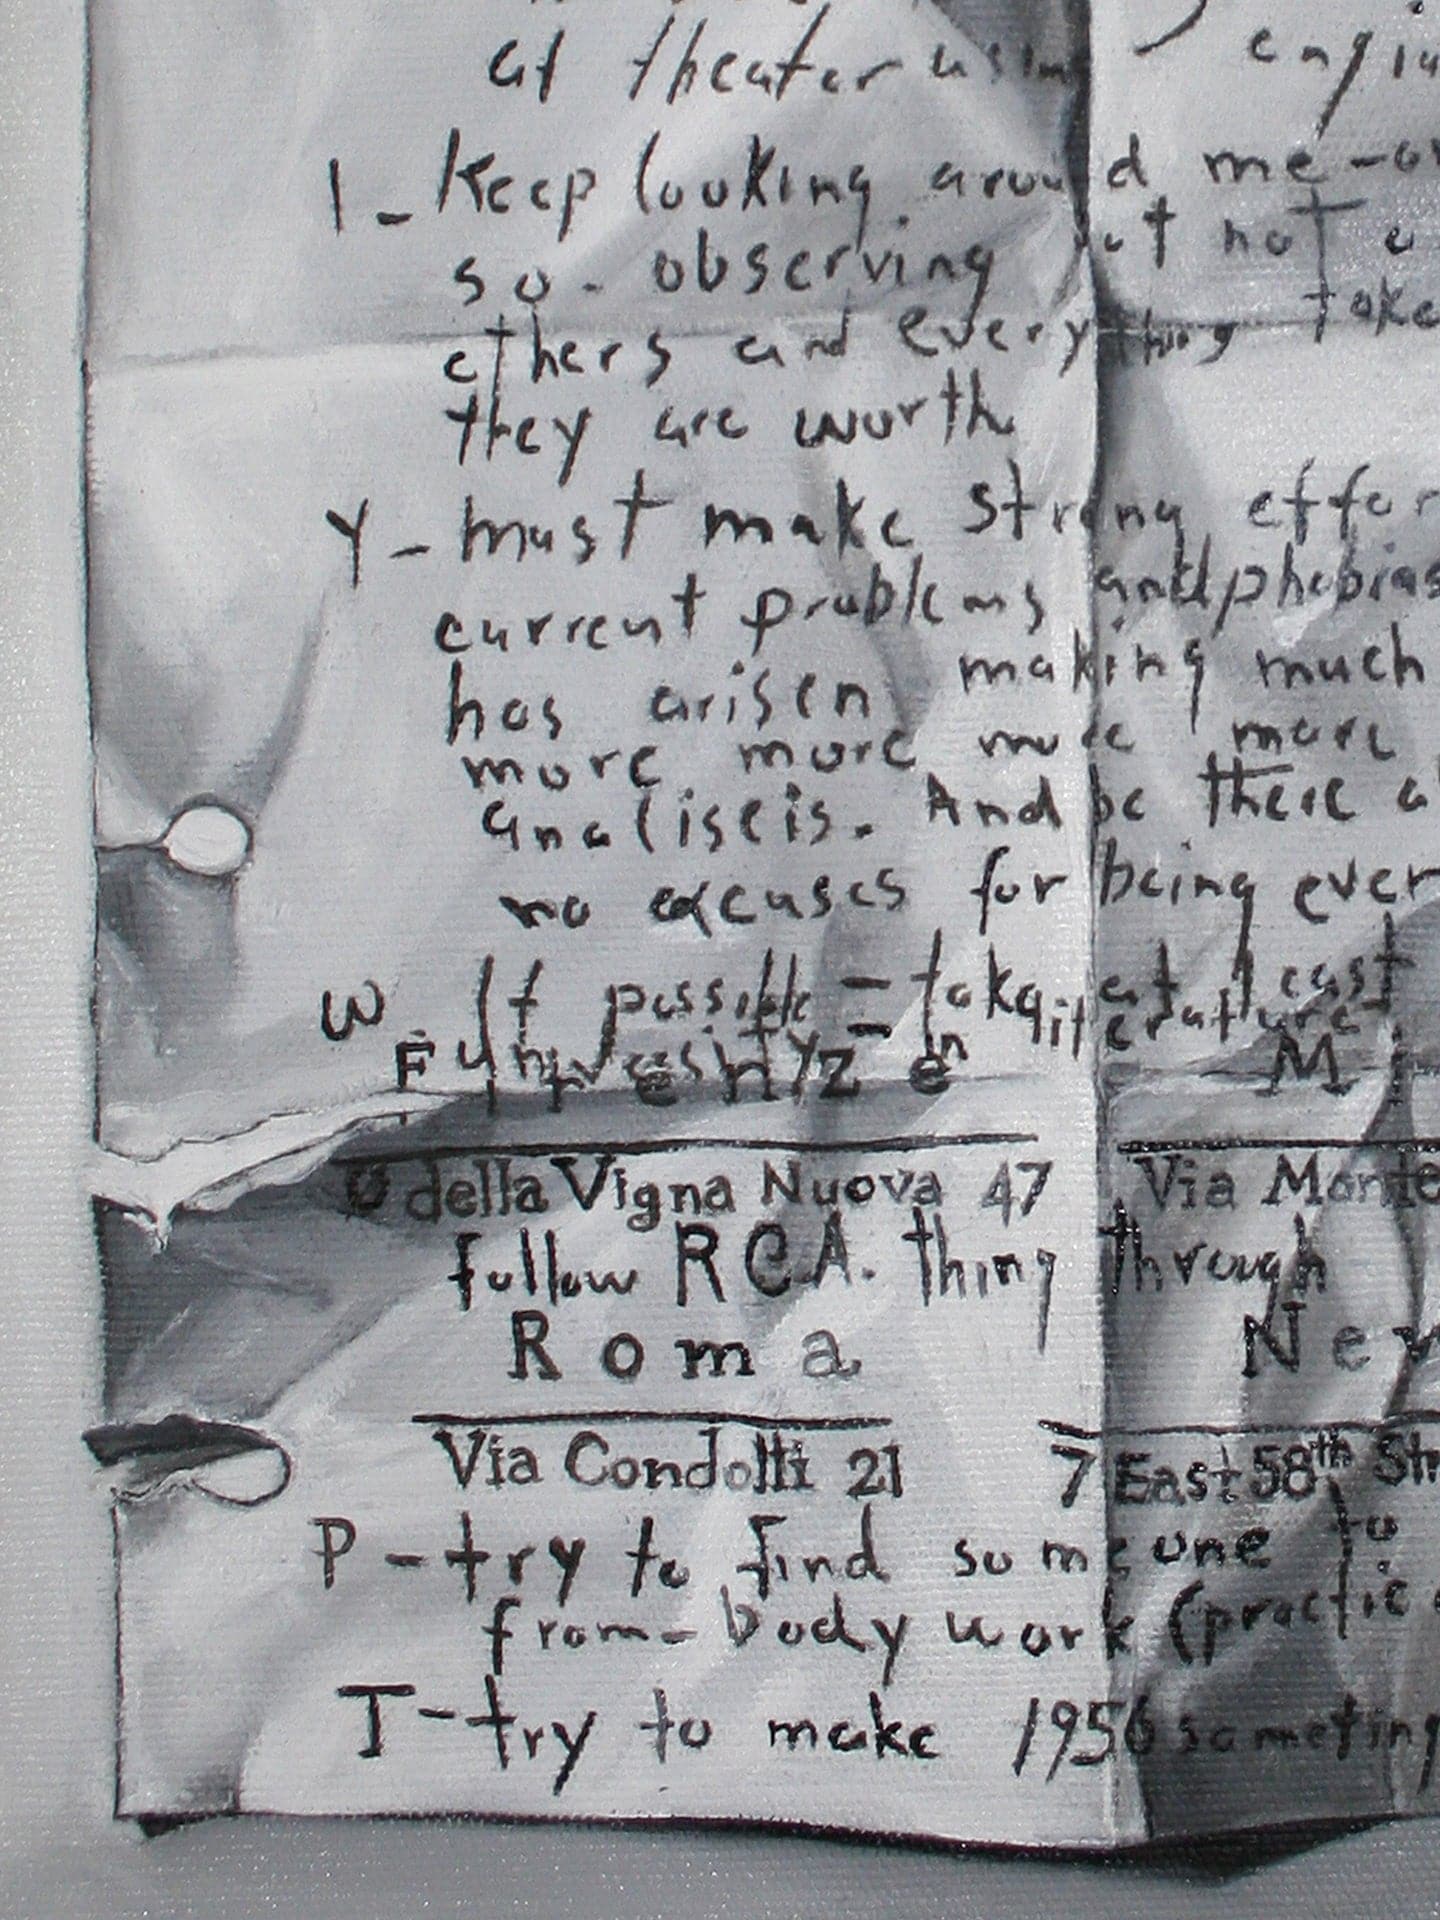 at theater using
I - Keep looking around me - 
so. observing but not
others and everything take
they are worth
Y - must make strong
current problems and phobias
has arisen making much
more more more more
analiseis. And be there
no excuses for being
W - If possible - take at least
university - in literature
Firenze M
della Vigna Nuova 47 Via
follow RCA. thing through
Roma
Via Condotti 21 7 East 58th
P - try to find someone to
from - body work (
T - try to make 1956 someting